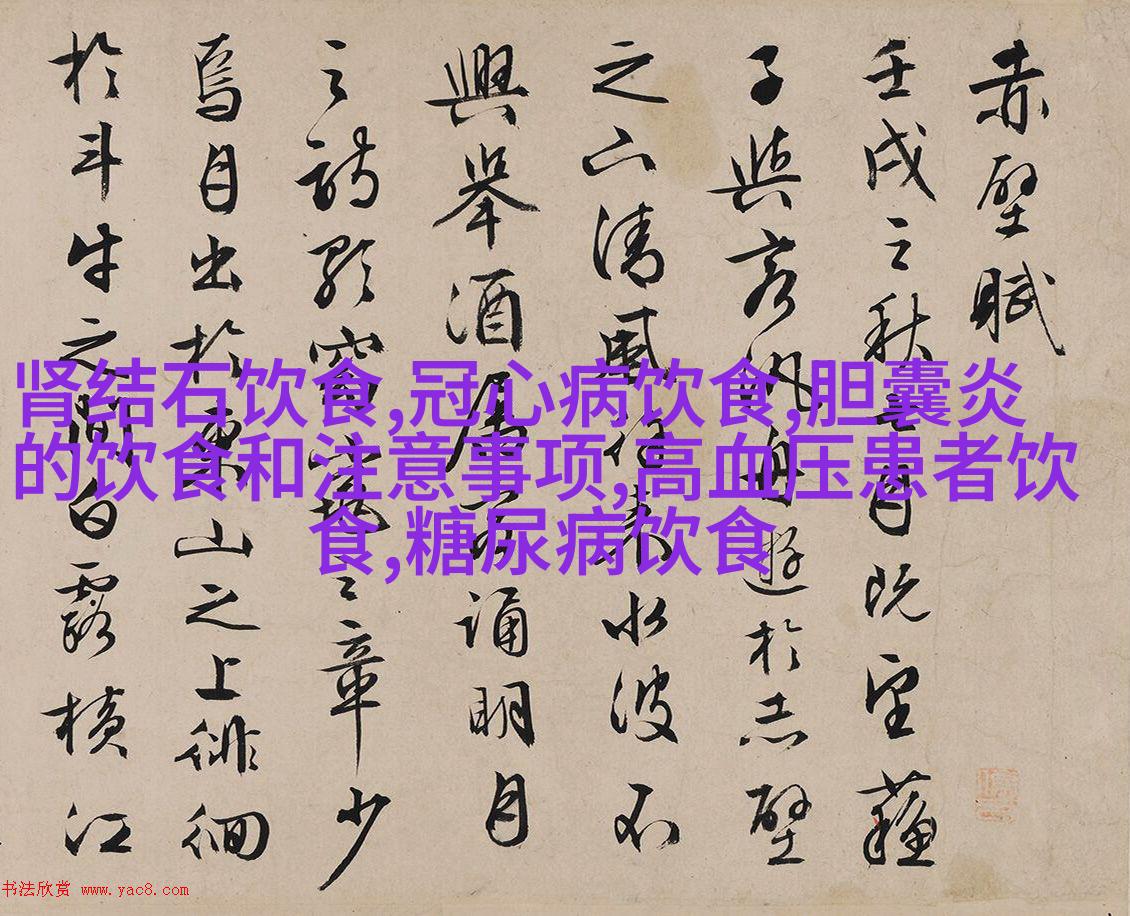 赤壁賦
壬戌之秋七月既望蘇
子與客泛舟遊於赤壁
之下清風徐來水波不
興舉酒屬客誦明月
之詩歌窈窕之章少
焉月出於東山之上徘徊
於斗牛之間白露橫江
肾结石饮食,冠心病饮食,胆囊炎
的饮食和注意事项,高血压患者饮
食,糖尿病饮食
书法欣赏 www.yac8.com